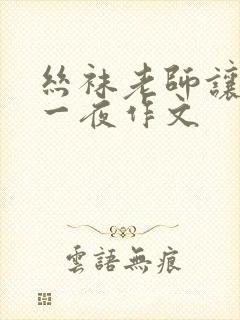 絲袜老師讓
一夜作文
雲語無痕